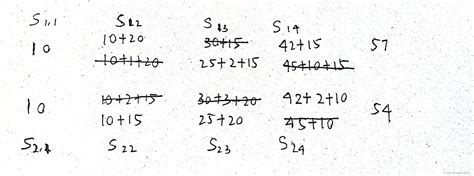 S1,1 S12 S13 S14
10 10+20 30+15 42+15 57
10+1+20 25+2+15 45+10+15
10 10+2+15 30+3+20 42+2+10 54
10+15 25+20 45+10
S2,1 S22 S23 S24